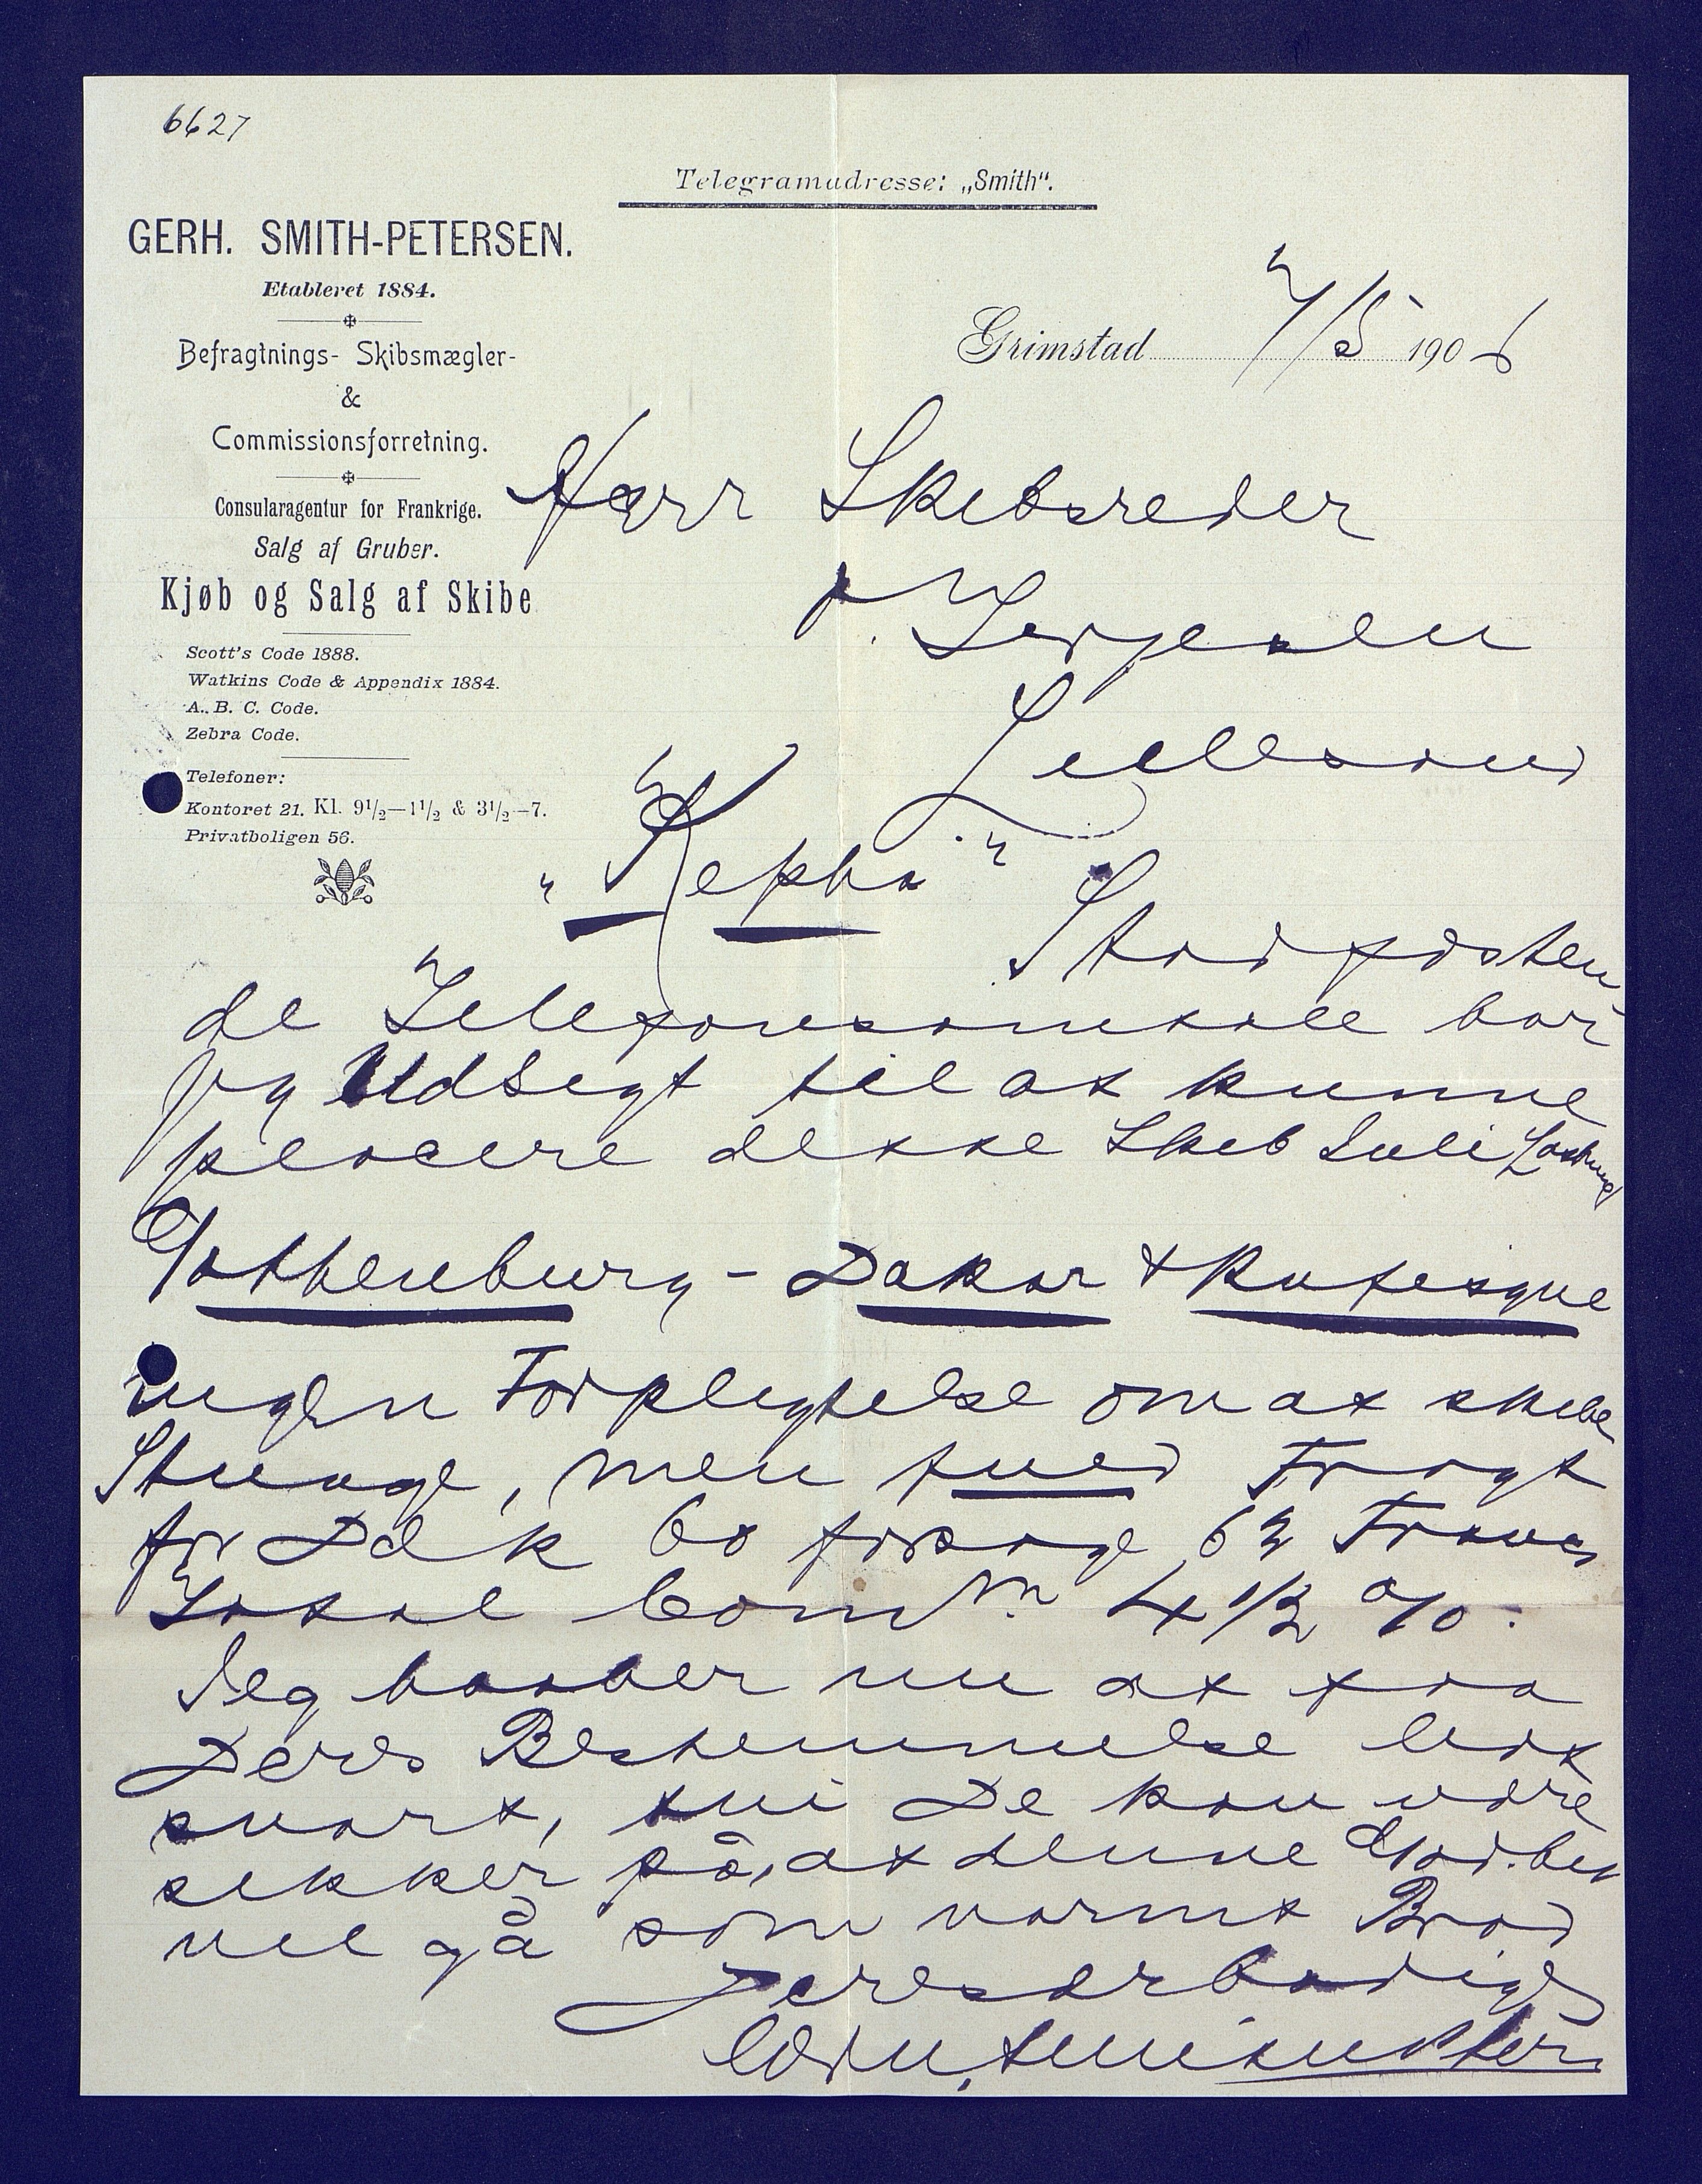 6627
Telegramadresse: „Smith“.
GERH. SMITH-PETERSEN.
Etableret 1884.
Befragtnings- Skibsmægler-
&
Commissionsforretning.
Consularagentur for Frankrige.
Salg af Gruber.
Kjøb og Salg af Skibe
Scott's Code 1888.
Watkins Code & Appendix 1884.
A. B. C. Code.
Zebra Code.
Telefoner:
Kontoret 21. Kl. 9½—1½ & 3½—7.
Privatboligen 56.
Grimstad 7/5 1906
Herr Skibsreder
Terjesen
Lillesand
„Kepha“
Stadfæsten-
de Telefonsamtale har
jeg Udsigt til at kunne
placere dette Skib Juli Lastning
Gothenburg - Dakar & Rufisque
ingen Forpligtelse om at skibe
Stuage, men fuld Fragt
for Dæk
Total Comm 4 1/2 %.
Jeg haaber nu at faa
Deres Bestemmelse
snart, thi De kan være
sikker på, at denne
vil gå som varmt Brød
Deres ærbødige